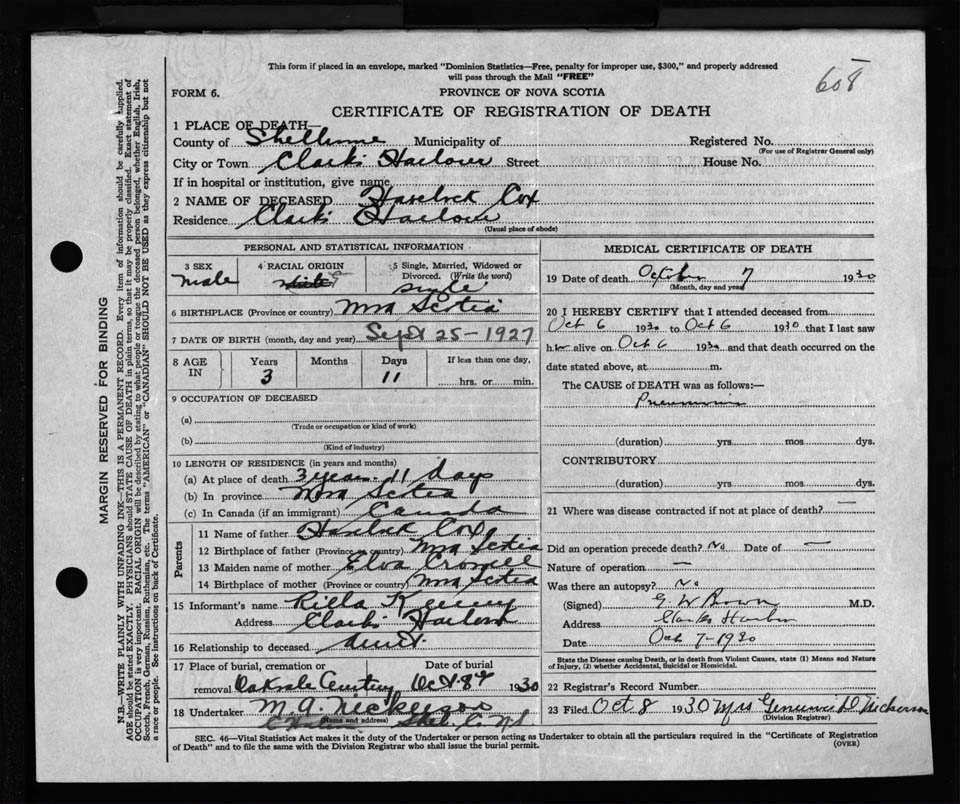 This form if placed in an envelope, marked "Dominion Statistics—Free, penalty for improper use, $300," and properly addressed
will pass through the Mail "FREE"
608
FORM 6.
PROVINCE OF NOVA SCOTIA
CERTIFICATE OF REGISTRATION OF DEATH
1 PLACE OF DEATH—
County of Shelburne Municipality of Registered No.
(For use of Registrar General only)
City or Town Clark's Harbour Street House No.
If in hospital or institution, give name
2 NAME OF DECEASED Havelock Cox
Residence Clark's Harbour
(Usual place of abode)
PERSONAL AND STATISTICAL INFORMATION
3 SEX 4 RACIAL ORIGIN 5 Single, Married, Widowed or
Divorced. (Write the word)
male white single
6 BIRTHPLACE (Province or country) Nova Scotia
7 DATE OF BIRTH (month, day and year) Sept 25-1927
8 AGE IN Years Months Days If less than one day,
3 11 hrs. or min.
9 OCCUPATION OF DECEASED
(a)
(Trade or occupation or kind of work)
(b)
(Kind of industry)
10 LENGTH OF RESIDENCE (in years and months)
(a) At place of death 3 years. 11 days
(b) In province Nova Scotia
(c) In Canada (if an immigrant) Canada
Parents
11 Name of father Havelock Cox
12 Birthplace of father (Province or country) Nova Scotia
13 Maiden name of mother Elva Crowell
14 Birthplace of mother (Province or country) Nova Scotia
15 Informant's name Rilla Kenny
Address Clark's Harbour
16 Relationship to deceased Aunt.
17 Place of burial, cremation or Date of burial
removal Cemetery Oct 8th 1930
18 Undertaker M. A. Nickerson
(Name and address) Shel. Co. N.S
MEDICAL CERTIFICATE OF DEATH
19 Date of death October 7 1930
(Month, day and year)
20 I HEREBY CERTIFY that I attended deceased from
Oct 6 1930 to Oct 6 1930 that I last saw
h alive on Oct 6 1930 and that death occurred on the
date stated above, at m.
The CAUSE of DEATH was as follows:—
Pneumonia
(duration) yrs. mos. dys.
CONTRIBUTORY
(duration) yrs. mos. dys.
21 Where was disease contracted if not at place of death? —
Did an operation precede death? No Date of —
Nature of operation —
Was there an autopsy? No
(Signed) G W Brown M.D.
Address Clarks Harbor
Date Oct 7-1930
State the Disease causing Death, or in death from Violent Causes, state (1) Means and Nature
of Injury, (2) whether Accidental, Suicidal or Homicidal.
22 Registrar's Record Number
23 Filed Oct 8 1930 Mrs D. Nickerson
(Division Registrar)
SEC. 46—Vital Statistics Act makes it the duty of the Undertaker or person acting as Undertaker to obtain all the particulars required in the "Certificate of Registration
of Death" and to file the same with the Division Registrar who shall issue the burial permit.
(OVER)
MARGIN RESERVED FOR BINDING
N.B.—WRITE PLAINLY WITH UNFADING INK—THIS IS A PERMANENT RECORD. Every item of information should be carefully supplied.
AGE should be stated EXACTLY. PHYSICIANS should STATE CAUSE OF DEATH in plain terms, so that it may be properly classified. Exact statement of
OCCUPATION is very important. RACIAL ORIGIN will be described by stating to what people or tongue the deceased person belonged, whether English, Irish,
Scotch, French, German, Russian, Ruthenian, etc. The terms "AMERICAN" or "CANADIAN" SHOULD NOT BE USED as they express citizenship but not
a race or people. See instructions on back of Certificate.